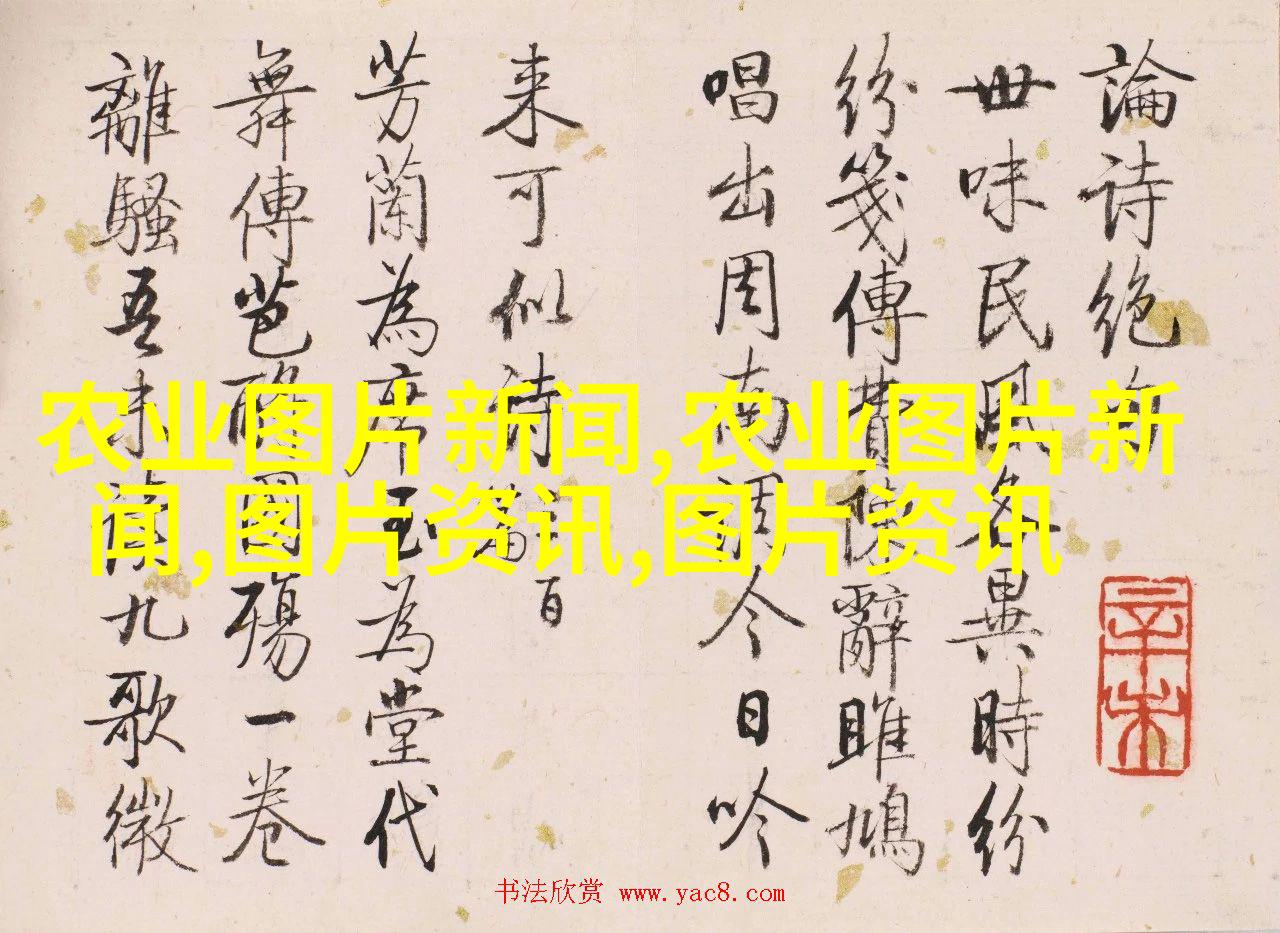 論诗绝
世味民風各異時紛
紛箋傳費陳辭雎鳩
唱出周南調今日吟
来可似诗
百
芳蘭為席玉為堂代
舞傳芭酹國殤一卷
離騷吾未讀九歌微
农业图片新闻,农业图片新
闻,图片资讯,图片资讯
书法欣赏 www.yac8.com